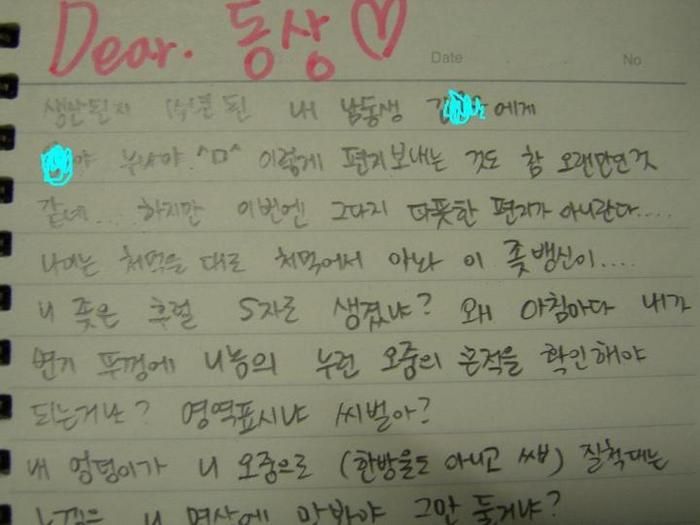 Dear. 동상 ♡
Date No
생산된지 년 된 내 남동생 김 에게
야 누나야.^ㅁ^ 이렇게 편지보내는 것도 참 오랜만인것
같네... 하지만 이번엔 그다지 따뜻한 편지가 아니란다....
나이는 처먹을 대로 처먹어서 아놔 이 좆뱅신이....
니 좆은 후럴 S자로 생겼냐? 왜 아침마다 내가
변기 뚜껑에 니놈의 누런 오줌의 흔적을 확인해야
되는거냐? 영역표시냐 씨벌아?
내 엉덩이가 니 오줌으로 (한방울도 아니고 씨바) 질척대는
느낌을 니 면상에 맛봐야 그만 둘거냐?